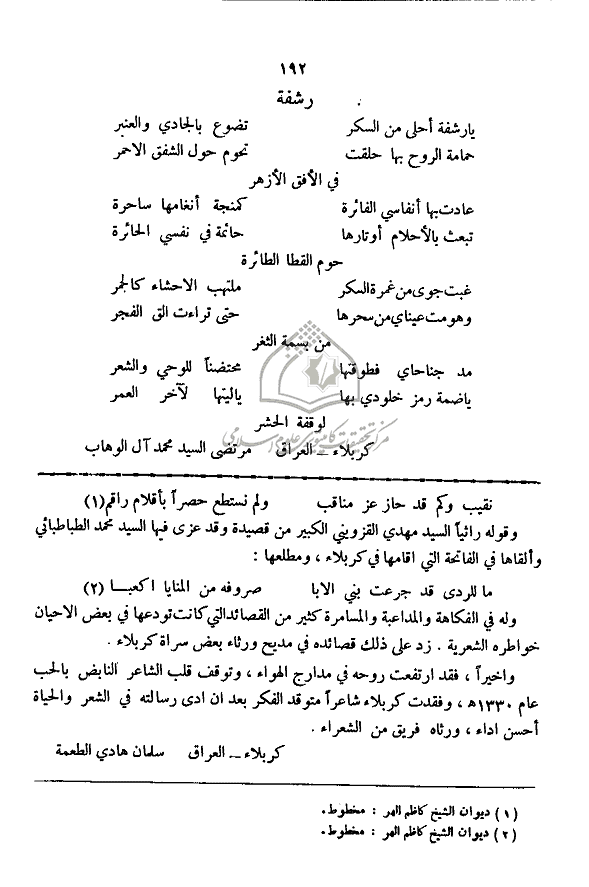 ١٩٢
رشفة
يارشفة أحلى من السكر تضوع بالجادي والعنبر
حمامة الروح بها حلقت تحوم حول الشفق الاحمر
في الأفق الأزهر
عادت بها أنفاسي الفائرة كمنجة أنغامها ساحرة
تبعث بالأحلام أوتارها حائمة في نفسي الحائرة
حوم القطا الطائرة
غبت جوى من غمرة السكر ملتهب الاحشاء كالجمر
وهومت عيناي من سحرها حتى تراءت الق الفجر
من بسمة الثغر
مد جناحاي فطوقتها محتضناً للوحي والشعر
ياضمة رمز خلودي بها ياليتها لآخر العمر
لوقفة الحشر
كربلاء ـ العراق مرتضى السيد محمد آل الوهاب
مركز تحقيقات كامپيوتری علوم اسلامی
نقيب وكم قد حاز عز مناقب ولم نستطع حصراً بأقلام راقم (١)
وقوله رائياً السيد مهدي القزويني الكبير من قصيدة وقد عزى فيها السيد محمد الطباطبائي
وألقاها في الفاتحة التي اقامها في كربلاء ، ومطلعها :
ما للردى قد جرعت بني الابا صروفه من المنايا اكعبا (٢)
وله في الفكاهة والمداعبة والمسامرة كثير من القصائد التي كانت تودعها في بعض الاحيان
خواطره الشعرية . زد على ذلك قصائده في مديح ورثاء بعض سراة كربلاء .
واخيراً ، فقد ارتفعت روحه في مدارج الهواء ، وتوقف قلب الشاعر النابض بالحب
عام ١٣٣٠ه ، وفقدت كربلاء شاعراً متوقد الفكر بعد ان ادى رسالته في الشعر والحياة
أحسن اداء ، ورثاه فريق من الشعراء .
كربلاء ـ العراق سلمان هادي الطعمة
(١) ديوان الشيخ كاظم الهر : مخطوط.
(٢) ديوان الشيخ كاظم الهر : مخطوط.